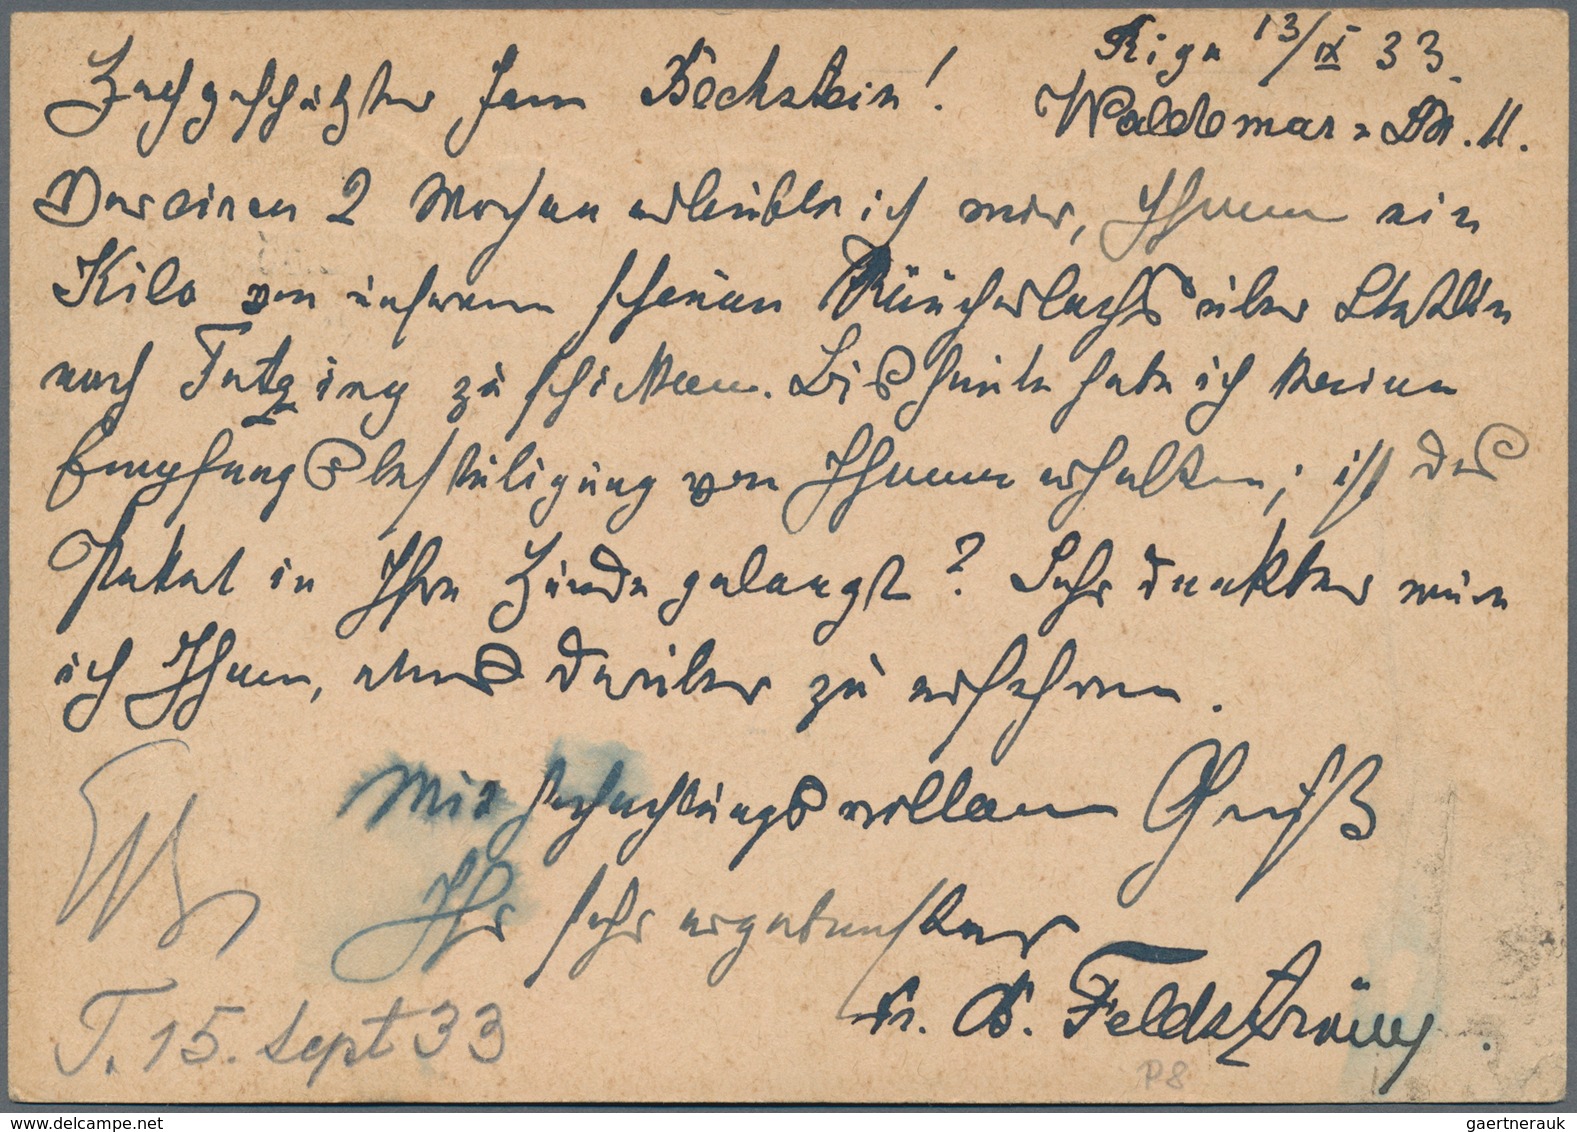 Riga 13/IX 33.
Hochgeschätzter Herr Bechstein!
Waldemar-Str. 11.
Vor einen 2 Wochen erlaubte ich mir, Ihnen ein
Kilo von unserem schönen Räucherlachs über Stettin
nach Tutzing zu schicken. Bis heute habe ich keine
Empfangsbestätigung von Ihnen erhalten; ist das
Paket in Ihre Hände gelangt? Sehr dankbar wäre
ich Ihnen, etwas darüber zu erfahren.
Mit hochachtungsvollem Gruß
Ihr sehr ergebenster
B. Feldt
T. 15. Sept 33
P8
gaertnerauk
www.delcampe.net